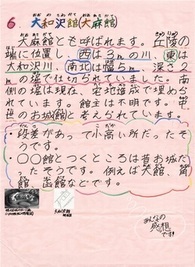 6 大和沢館(大麻館)
大麻館とも呼ばれます。丘陵の
端に位置し、西は3mの川、東は
大和沢川 南北は幅5m、深さ2
mの堀で仕切られていました。
堀は南側は現在、宅地造成で埋めら
れています。館主は不明です。中
世のお城だと考えられています。
・段差があって小高い所だったそ
うです。
・〇〇館とつくところは昔お城だ
ったそうです。例えば大館、
函館などです。
みんなの
感想
です!